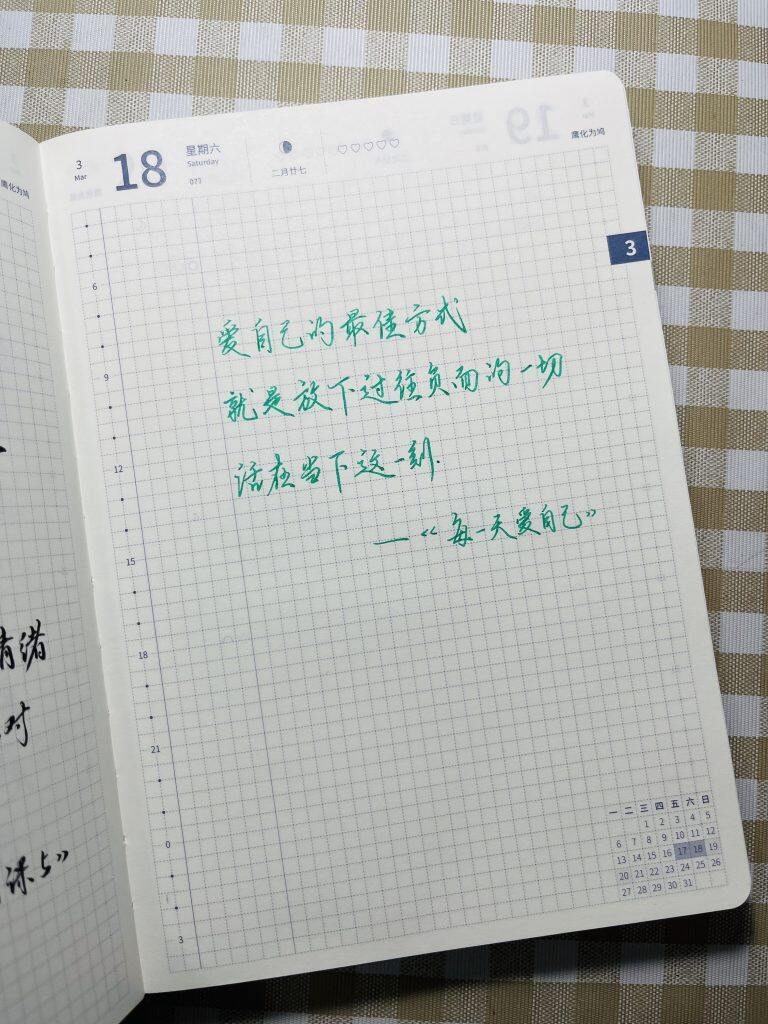 鹰化为鸠
3
Mar
18
星期六
Saturday
077
二月廿七
19
鹰化为鸠
3
6
9
12
15
18
21
0
3
爱自己的最佳方式
就是放下过往负面的一切
活在当下这一刻.
——《每一天爱自己》
情绪
对
课5》
一 二 三 四 五 六 日
1 2 3 4 5
6 7 8 9 10 11 12
13 14 15 16 17 18 19
20 21 22 23 24 25 26
27 28 29 30 31